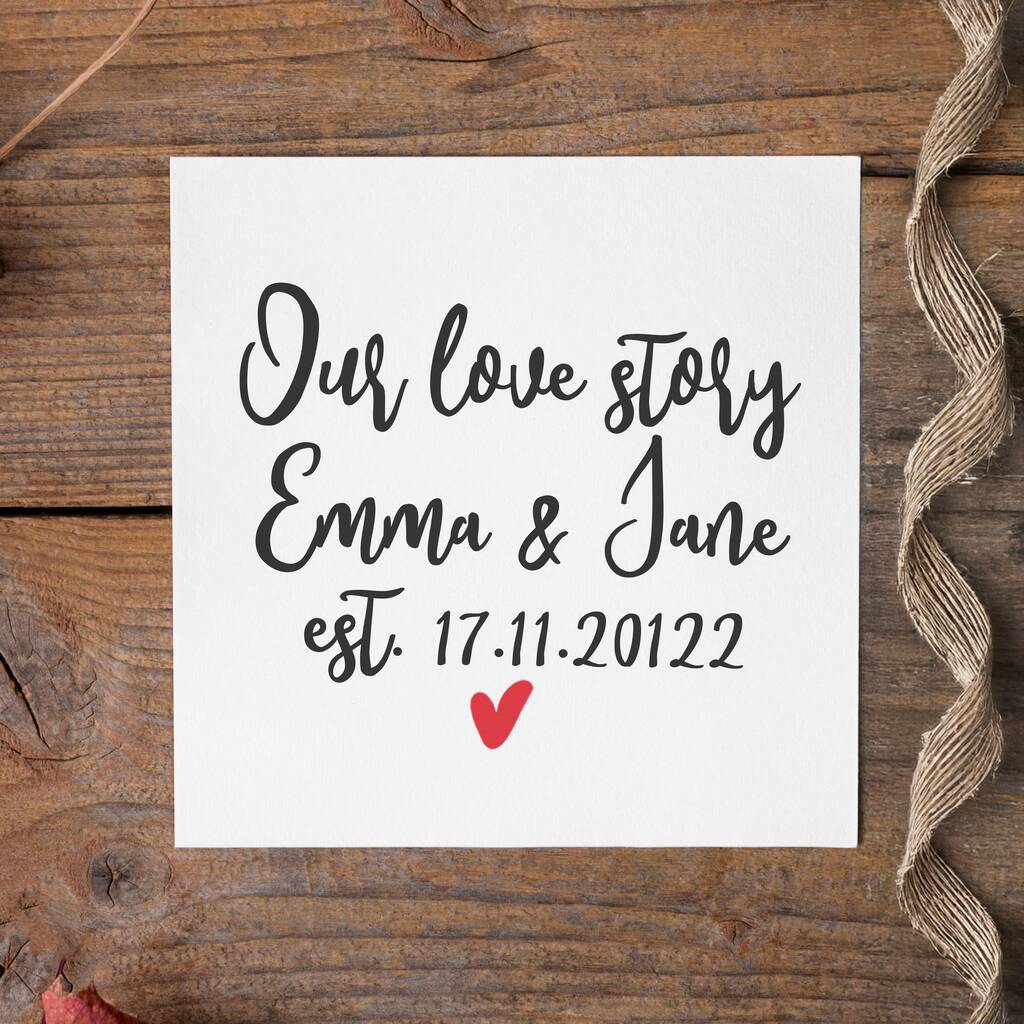 Our love story
Emma & Jane
est. 17.11.20122